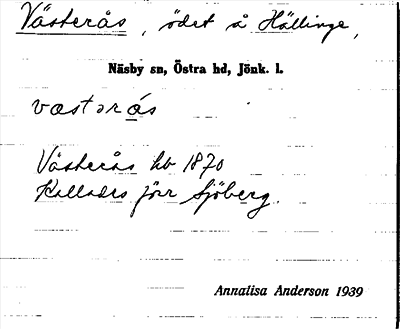 Västerås, ödet å Hällinge,
Näsby sn, Östra hd, Jönk. l.
västərås
Västerås hb 1870
Kallades förr Sjöberg.
Annalisa Anderson 1939